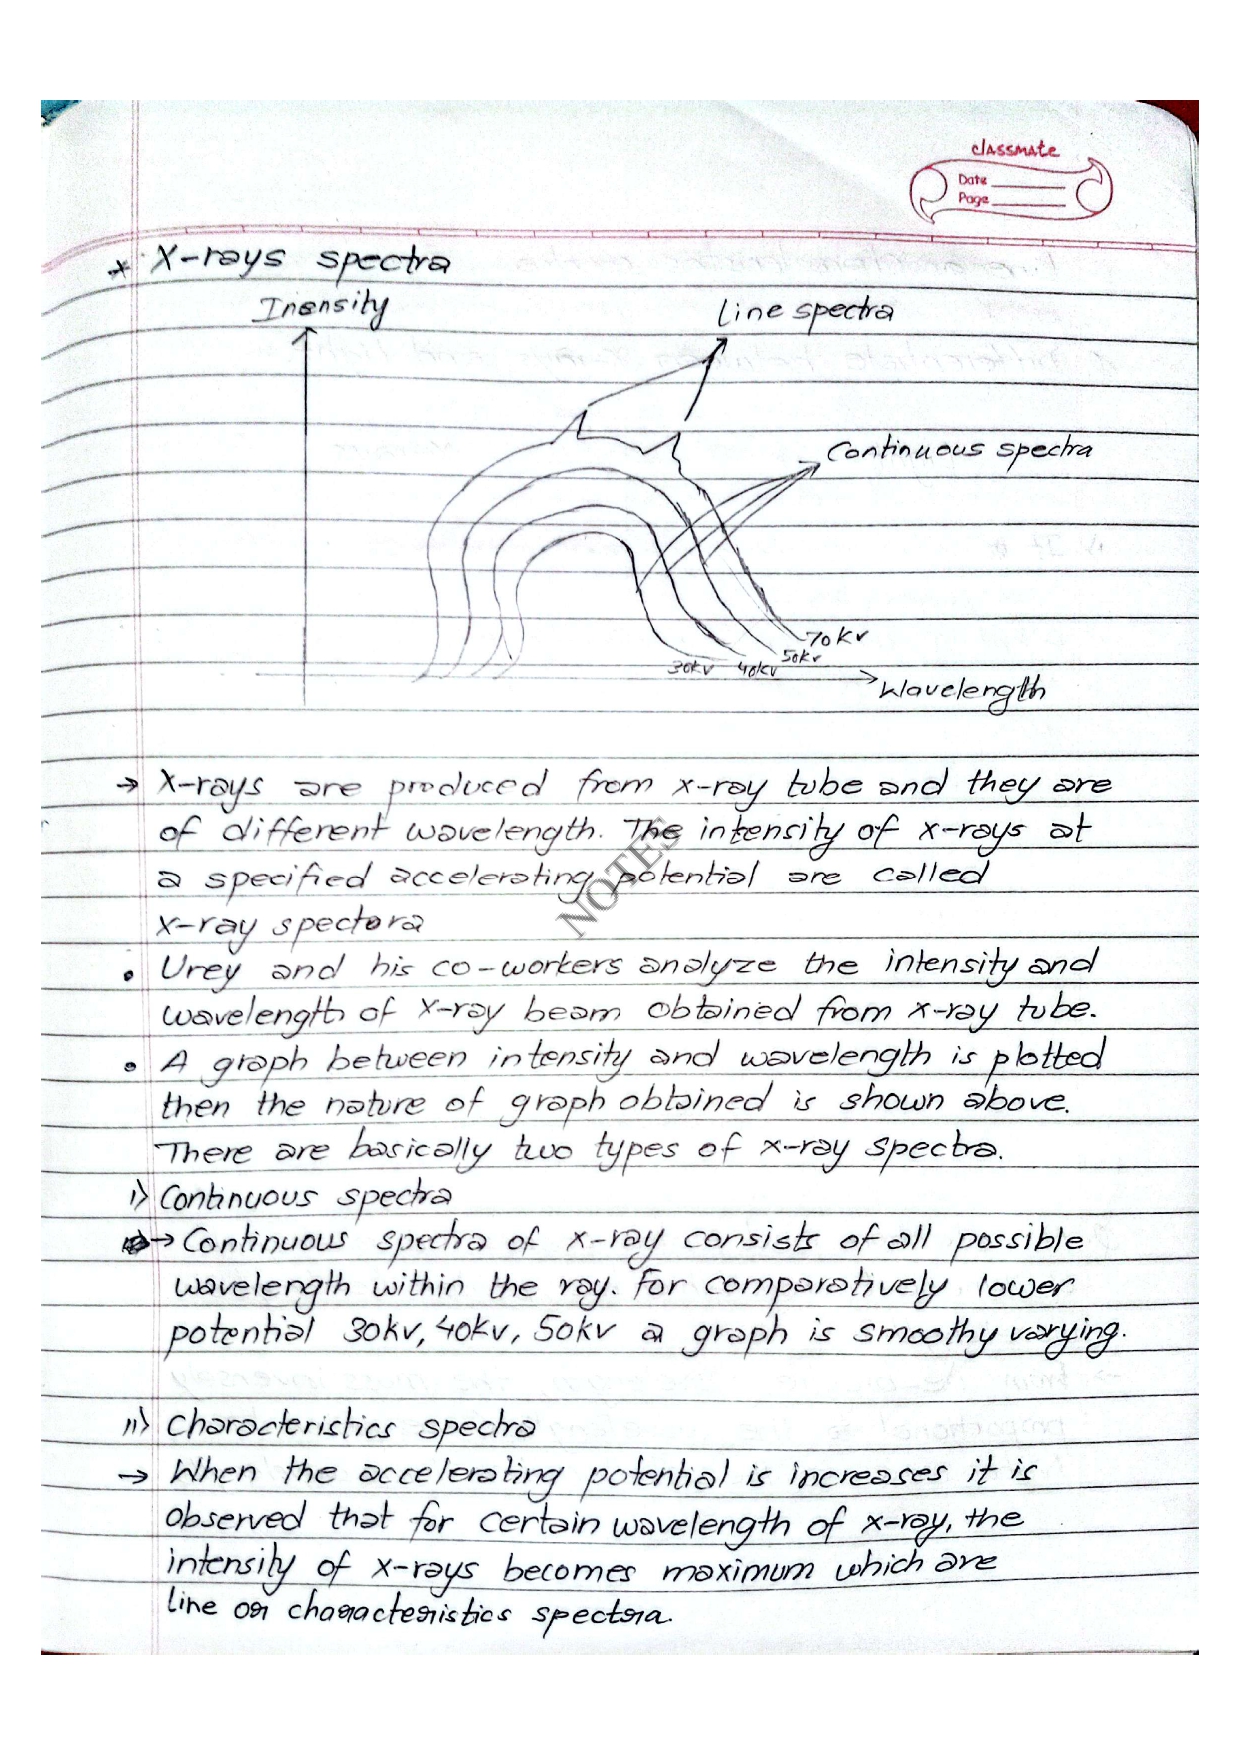 classmate
Date
Page
* X-rays spectra
Inensity
Line spectra
Continuous spectra
70kv
50kv
30kv 40kv
Wavelength
→ X-rays are produced from x-ray tube and they are
of different wavelength. The intensity of x-rays at
a specified accelerating potential are called
x-ray spectora
NOTES
• Urey and his co-workers analyze the intensity and
wavelength of x-ray beam obtained from x-ray tube.
• A graph between intensity and wavelength is plotted
then the nature of graph obtained is shown above.
There are basically two types of x-ray spectra.
i) Continuous spectra
→ Continuous spectra of x-ray consists of all possible
wavelength within the ray. For comparatively lower
potential 30kv, 40kv, 50kv a graph is smoothy varying.
ii) Characteristics spectra
→ When the accelerating potential is increases it is
observed that for certain wavelength of x-ray, the
intensity of x-rays becomes maximum which are
line or characteristics spectra.